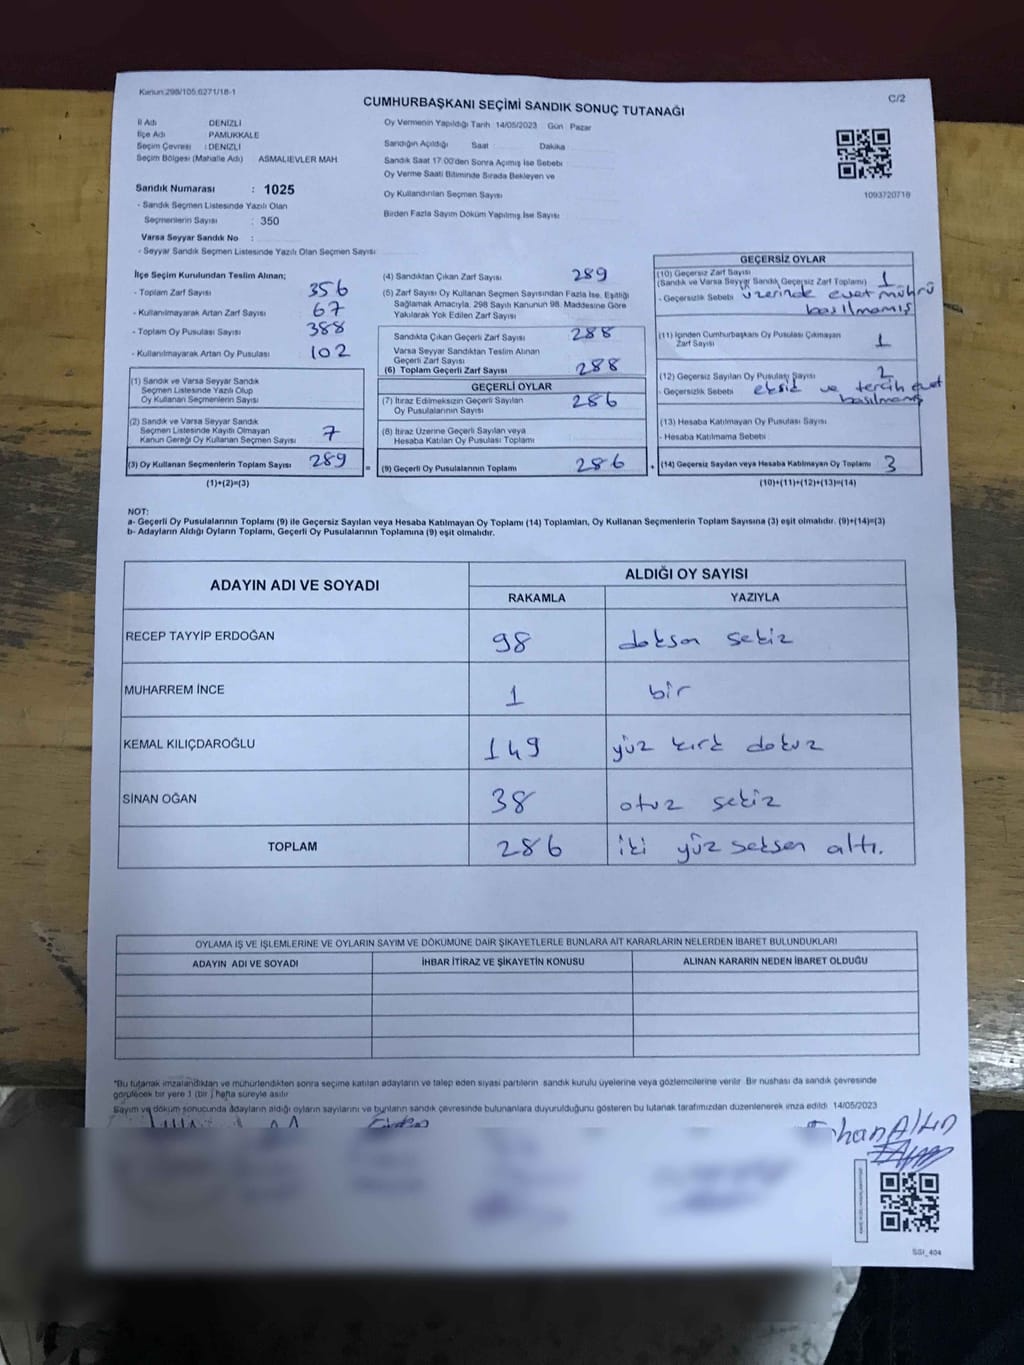 Kanun:298/105,6271/18-1
CUMHURBAŞKANI SEÇİMİ SANDIK SONUÇ TUTANAĞI
C/2
İl Adı DENİZLİ
İlçe Adı PAMUKKALE
Seçim Çevresi : DENİZLİ
Seçim Bölgesi (Mahalle Adı) ASMALIEVLER MAH
Sandık Numarası : 1025
- Sandık Seçmen Listesinde Yazılı Olan
Seçmenlerin Sayısı : 350
Varsa Seyyar Sandık No :
- Seyyar Sandık Seçmen Listesinde Yazılı Olan Seçmen Sayısı
Oy Vermenin Yapıldığı Tarih 14/05/2023 Gün Pazar
Sandığın Açıldığı Saat Dakika
Sandık Saat 17:00'den Sonra Açılmış İse Sebebi
Oy Verme Saati Bitiminde Sırada Bekleyen ve
Oy Kullandırılan Seçmen Sayısı
Birden Fazla Sayım Döküm Yapılmış İse Sayısı
1093720718
İlçe Seçim Kurulundan Teslim Alınan;
- Toplam Zarf Sayısı 356
- Kullanılmayarak Artan Zarf Sayısı 67
- Toplam Oy Pusulası Sayısı 388
- Kullanılmayarak Artan Oy Pusulası 102
(1) Sandık ve Varsa Seyyar Sandık
Seçmen Listesinde Yazılı Olup
Oy Kullanan Seçmenlerin Sayısı
(2) Sandık ve Varsa Seyyar Sandık
Seçmen Listesinde Kayıtlı Olmayan
Kanun Gereği Oy Kullanan Seçmen Sayısı 7
(3) Oy Kullanan Seçmenlerin Toplam Sayısı 289 =
(1)+(2)=(3)
(4) Sandıktan Çıkan Zarf Sayısı 289
(5) Zarf Sayısı Oy Kullanan Seçmen Sayısından Fazla İse, Eşitliği
Sağlamak Amacıyla, 298 Sayılı Kanunun 98. Maddesine Göre
Yakılarak Yok Edilen Zarf Sayısı
Sandıkta Çıkan Geçerli Zarf Sayısı 288
Varsa Seyyar Sandıktan Teslim Alınan
Geçerli Zarf Sayısı
(6) Toplam Geçerli Zarf Sayısı 288
GEÇERLİ OYLAR
(7) İtiraz Edilmeksizin Geçerli Sayılan
Oy Pusulalarının Sayısı 286
(8) İtiraz Üzerine Geçerli Sayılan veya
Hesaba Katılan Oy Pusulası Toplamı
(9) Geçerli Oy Pusulalarının Toplamı 286 +
GEÇERSİZ OYLAR
(10) Geçersiz Zarf Sayısı
(Sandık ve Varsa Seyyar Sandık Geçersiz Zarf Toplamı) 1
- Geçersizlik Sebebi üzerinde evet mührü
basılmamış
(11) İçinden Cumhurbaşkanı Oy Pusulası Çıkmayan
Zarf Sayısı 1
(12) Geçersiz Sayılan Oy Pusulası Sayısı
- Geçersizlik Sebebi eksik ve tercih evet
basılmamış
(13) Hesaba Katılmayan Oy Pusulası Sayısı
- Hesaba Katılmama Sebebi
(14) Geçersiz Sayılan veya Hesaba Katılmayan Oy Toplamı 3
(10)+(11)+(12)+(13)=(14)
NOT:
a- Geçerli Oy Pusulalarının Toplamı (9) ile Geçersiz Sayılan veya Hesaba Katılmayan Oy Toplamı (14) Toplamları, Oy Kullanan Seçmenlerin Toplam Sayısına (3) eşit olmalıdır. (9)+(14)=(3)
b- Adayların Aldığı Oyların Toplamı, Geçerli Oy Pusulalarının Toplamına (9) eşit olmalıdır.
ADAYIN ADI VE SOYADI
ALDIĞI OY SAYISI
RAKAMLA YAZIYLA
RECEP TAYYİP ERDOĞAN 98 doksan sekiz
MUHARREM İNCE 1 bir
KEMAL KILIÇDAROĞLU 149 yüz kırk dokuz
SİNAN OĞAN 38 otuz sekiz
TOPLAM 286 iki yüz seksen altı.
OYLAMA İŞ VE İŞLEMLERİNE VE OYLARIN SAYIM VE DÖKÜMÜNE DAİR ŞİKAYETLERLE BUNLARA AİT KARARLARIN NELERDEN İBARET BULUNDUKLARI
ADAYIN ADI VE SOYADI İHBAR İTİRAZ VE ŞİKAYETİN KONUSU ALINAN KARARIN NEDEN İBARET OLDUĞU
*Bu tutanak imzalandıktan ve mühürlendikten sonra seçime katılan adayların ve talep eden siyasi partilerin sandık kurulu üyelerine veya gözlemcilerine verilir. Bir nushası da sandık çevresinde
görülecek bir yere 1 (bir) hafta süreyle asılır
Sayım ve döküm sonucunda adayların aldığı oyların sayılarını ve bunların sandık çevresinde bulunanlara duyurulduğunu gösteren bu tutanak tarafımızdan düzenlenerek imza edildi. 14/05/2023
SSI_404